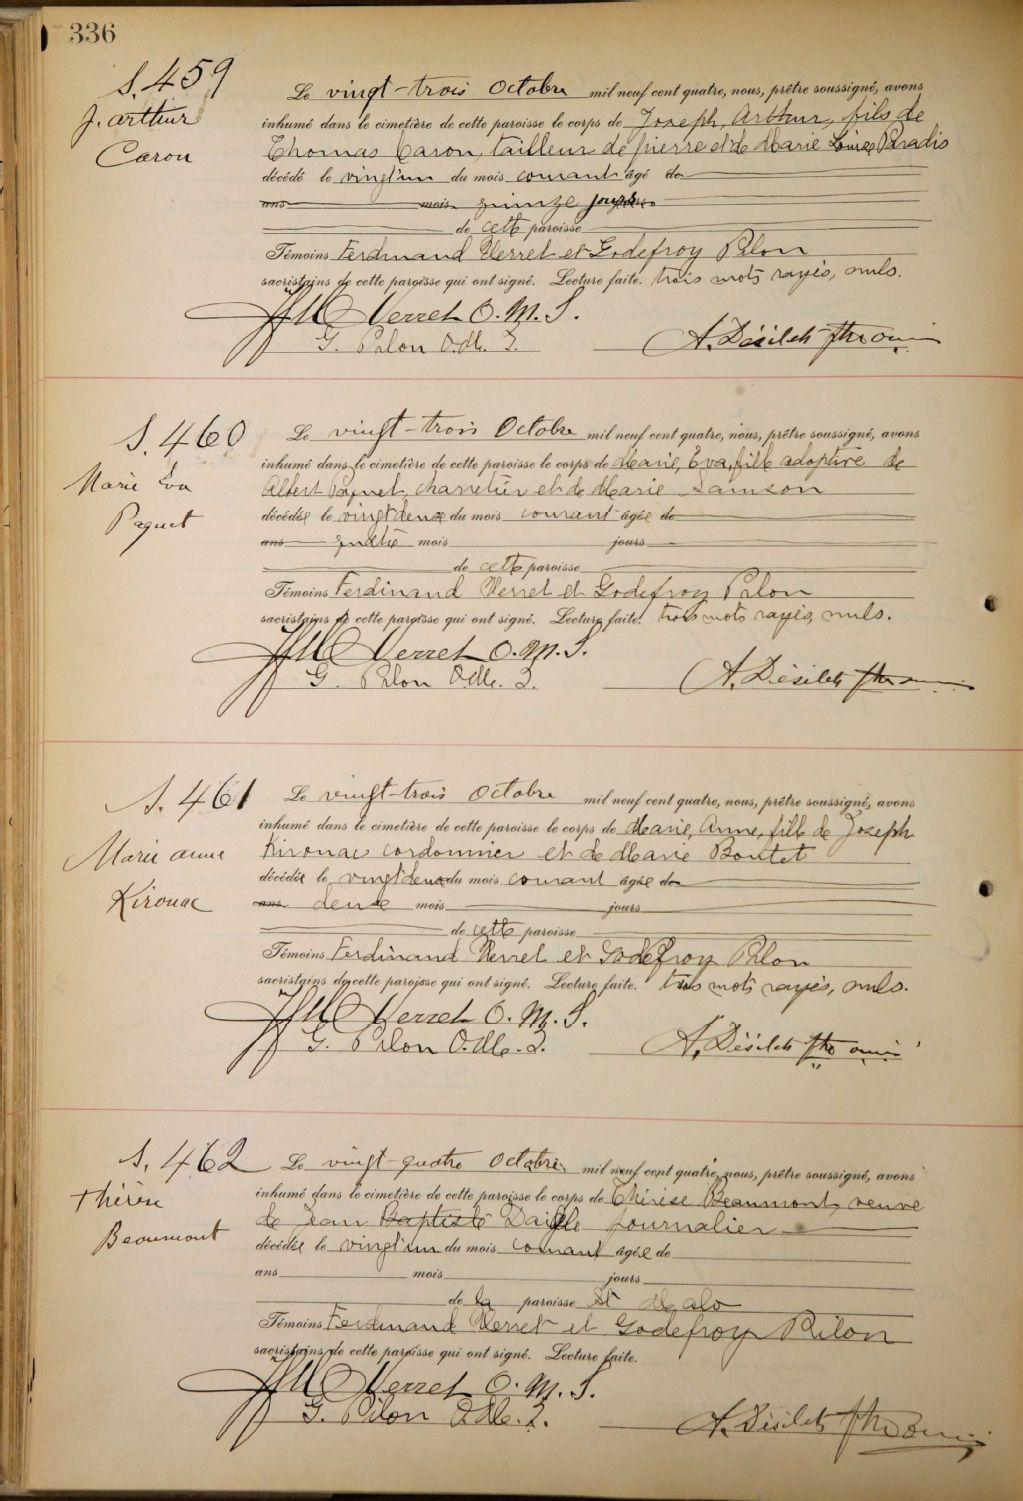 336
S. 459
J. arthur
Caron
Le vingt-trois Octobre mil neuf cent quatre, nous, prêtre soussigné, avons
inhumé dans le cimetière de cette paroisse le corps de Joseph, Arthur, fils de
Thomas Caron, tailleur de pierre et de Marie Louise Paradis
décédé le vingt'un du mois courant âgé de
ans mois quinze jours
de cette paroisse
Témoins Ferdinand Verret et Godefroy Pilon
sacristains de cette paroisse qui ont signé. Lecture faite. trois mots rayés, nuls.
Verret O. M. S.
G. Pilon O.M. I.
A. Désilets
S. 460
Marie Eva
Paquet
Le vingt-trois Octobre mil neuf cent quatre, nous, prêtre soussigné, avons
inhumé dans le cimetière de cette paroisse le corps de Marie, Eva, fille adoptive de
Albert Paquet, charretier et de Marie Samson
décédée le vingt deux du mois courant âgée de
ans quatre mois jours
de cette paroisse
Témoins Ferdinand Verret et Godefroy Pilon
sacristains de cette paroisse qui ont signé. Lecture faite. trois mots rayés, nuls.
Verret O. M. S.
G. Pilon O.M. I.
A. Désilets
S. 461
Marie anne
Kirouac
Le vingt-trois Octobre mil neuf cent quatre, nous, prêtre soussigné, avons
inhumé dans le cimetière de cette paroisse le corps de Marie, Anne, fille de Joseph
Kirouac cordonnier et de Marie Boutet
décédée le vingt deux du mois courant âgée de
ans deux mois jours
de cette paroisse
Témoins Ferdinand Verret et Godefroy Pilon
sacristains de cette paroisse qui ont signé. Lecture faite. trois mots rayés, nuls.
Verret O. M. S.
G. Pilon O.M. I.
A. Désilets
S. 462
Thérèse
Beaumont
Le vingt-quatre Octobre mil neuf cent quatre, nous, prêtre soussigné, avons
inhumé dans le cimetière de cette paroisse le corps de Thérèse Beaumont, veuve
de Jean Baptiste Daigle journalier
décédée le vingt'un du mois courant âgée de
ans mois jours
de la paroisse St Malo
Témoins Ferdinand Verret et Godefroy Pilon
sacristains de cette paroisse qui ont signé. Lecture faite.
Verret O. M. S.
G. Pilon O.M. I.
A. Désilets